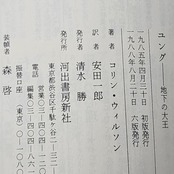 ユング――地下の大王
一九八五年四月三十日 初版発行
一九八八年八月二十日 六版発行
著者 コリン・ウィルソン
訳者 安田一郎
発行者 清水 勝
発行所 河出書房新社
東京都渋谷区千駄ヶ谷二―三二―
電話 営業〇三―四〇四―一二
編集〇三―四〇四―八六
振替口座 (東京)〇―一〇八
装幀者 森 啓